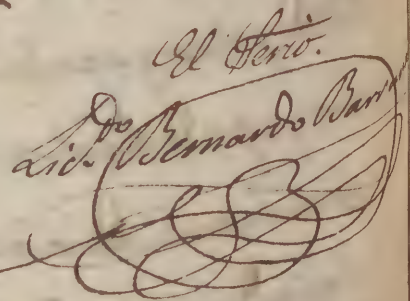 El Serio.
Licdo. Bernardo